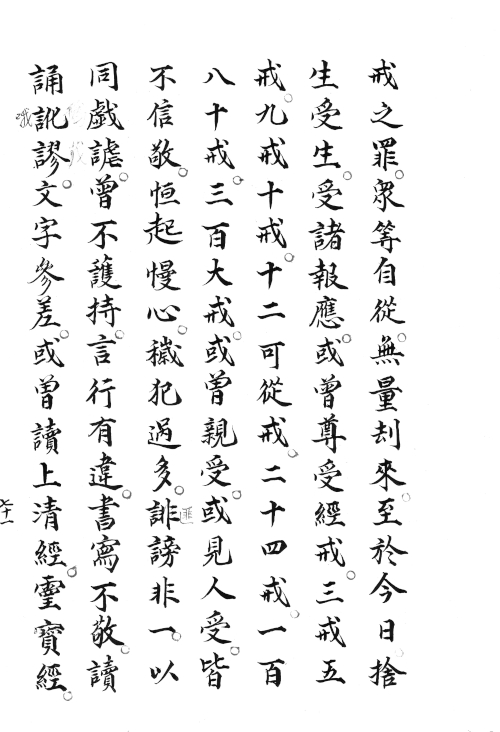 戒之罪衆等自從無量刦來至於今日捨
生受生受諸報應或曾尊受經戒三戒五
戒九戒十戒十二可從戒二十四戒一百
八十戒三百大戒或曾親受或見人受皆
不信敬恒起慢心穢犯過多誹謗非一以
同戲謔曾不護持言行有違書寫不敬讀
誦訛謬文字參差或曾讀上清經靈寶經
七十一